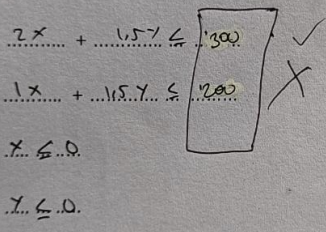 2x + 1,5y ≤ 300 ✓
1x + 1,5y ≤ 200 X
x ≤ 0
y ≤ 0.